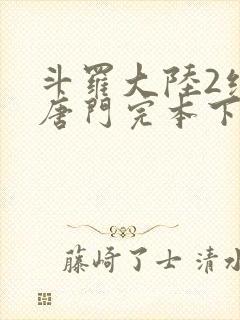 斗羅大陸2
唐門完本下
藤崎了士 清水